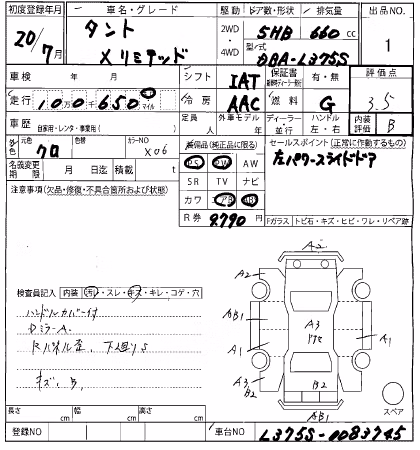 初度登録年月 車名・グレード 駆動 ドア数・形状 排気量 出品NO.
20/7月 タント Xリミテッド 2WD・4WD 5HB 660cc 1
型/式 DBA-L375S
車検 年 月 シフト IAT 保証書 有・無 評価点 3.5
走行 10万0千650 マイル 冷房 AAC 燃料 G
車歴 自家用・レンタ・事業用( ) 定員 人 外車モデル 年 ディーラー・並行 ハンドル 左・右 内装評価 B
外色 元色 クロ 色替 カラーNO X06 装備品(純正品に限る) セールスポイント(正常に作動するもの)
PS PW AW 左パワースライドドア
名義変更期限 月 日迄 積載 t SR TV ナビ
注意事項(欠品・修復・不具合箇所および状態) カワ エアB AB
R券 9790 Fガラス トビ石・キズ・ヒビ・ワレ・リペア跡
A2
A2
検査員記入 内装 汚レ・スレ・キズ・キレ・コゲ・穴
ハンドルカバー付 AB1
DミラーA. A3
Rパネル歪、下廻りS A1 A1
キズ、B, A3 B2 B2
AB1 スペア
長さ cm 幅 cm 高さ cm
登録NO 車台NO L375S-0083745